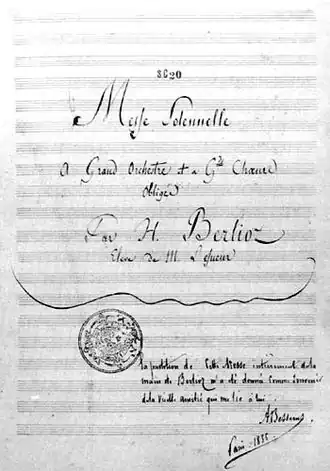 SC20
Messe Solennelle
A Grand Orchestre et a Gds Chœurs
Obligés
Par H. Berlioz
Eleve de M. Lesueur
La partition de cette Messe entierement de la
main de Berlioz m'a été donnée comme souvenir
de la vieille amitié qui me lie à lui.
ABessems
Paris 1835